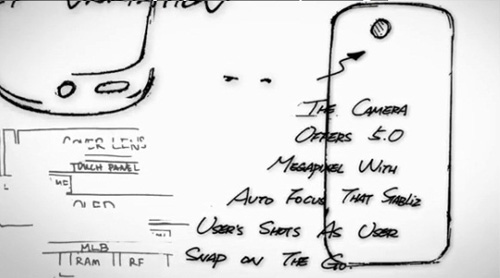 The Camera
Offers 5.0
Megapixel With
Auto Focus That Stabliz
User's Shots As User
Snap on The Go.
Touch Panel
MLB
RAM RF